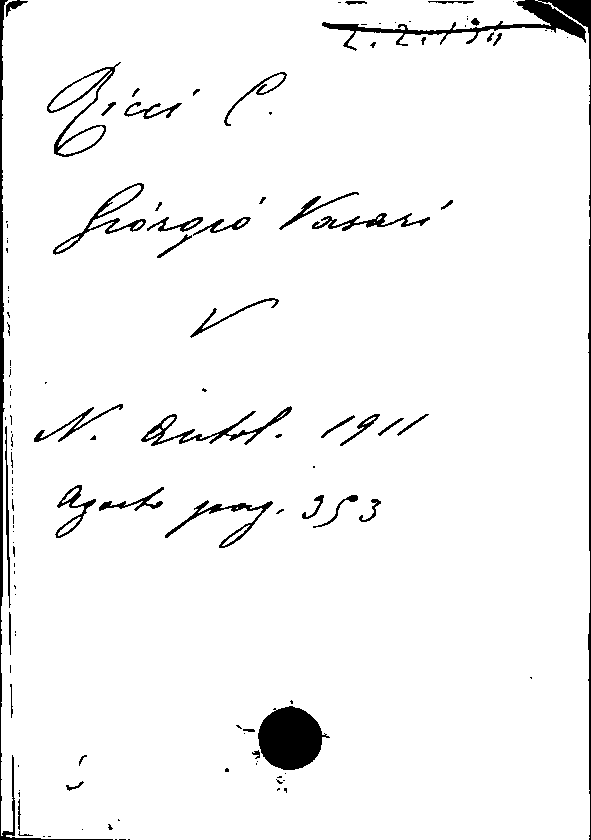 Ricci C.
Giorgio Vasari
V
N. Antol. 1911
Agosto pag. 353